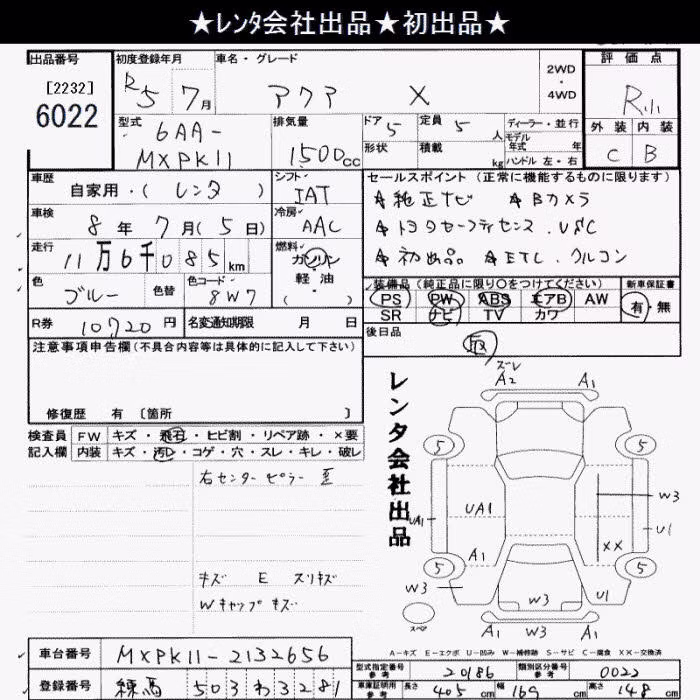 ★レンタ会社出品★初出品★
出品番号
[2232]
6022
初度登録年月
R5 7月
車名・グレード
アクア X
2WD
・
4WD
評価点
R小
外装 内装
C B
型式
6AA-
MXPK11
排気量
1500cc
ドア 5
定員 5人
ディーラー・並行
モデル
年式 年
形状
積載 kg
ハンドル 左・右
車歴
自家用・( レンタ )
シフト
IAT
セールスポイント (正常に機能するものに限ります)
☆純正ナビ ☆Bカメラ
☆トヨタセーフティセンス. VSC
☆初出品 ☆ETC. クルコン
車検
8年 7月 ( 5日)
冷房
AAC
走行
11万6千085km
燃料
ガソリン
軽・油
・
色
ブルー
色替
色コード
8W7
装備品 (純正品に限り○をつけてください)
PS PW ABS エアB AW
SR ナビ TV カワ
新車保証書
有・無
R券
10720円
名変通知期限 月 日
後日品
取
注意事項申告欄 (不具合内容等は具体的に記入して下さい)
修復歴 有 〔箇所 〕
検査員
記入欄
FW キズ・飛石・ヒビ割・リペア跡・×要
内装 キズ・汚レ・コゲ・穴・スレ・キレ・破レ
右センターピラー 歪
キズ E スリキズ
Wキャップキズ
レンタ会社出品
ズレ
A2
A1
A1
5
5
UA1
UA1
W3
U1
A1
XX
5
5
W3
W3
U1
スペア
A1
A1
A-キズ E-エクボ U-凹み W-補修跡 S-サビ C-腐食 XX-交換済
車台番号
MXPK11-2132656
登録番号
練馬 503わ3281
型式指定番号
参考
20186
類別区分番号
参考
0022
車庫証明用
参考
長さ 405cm
幅 169cm
高さ 148cm